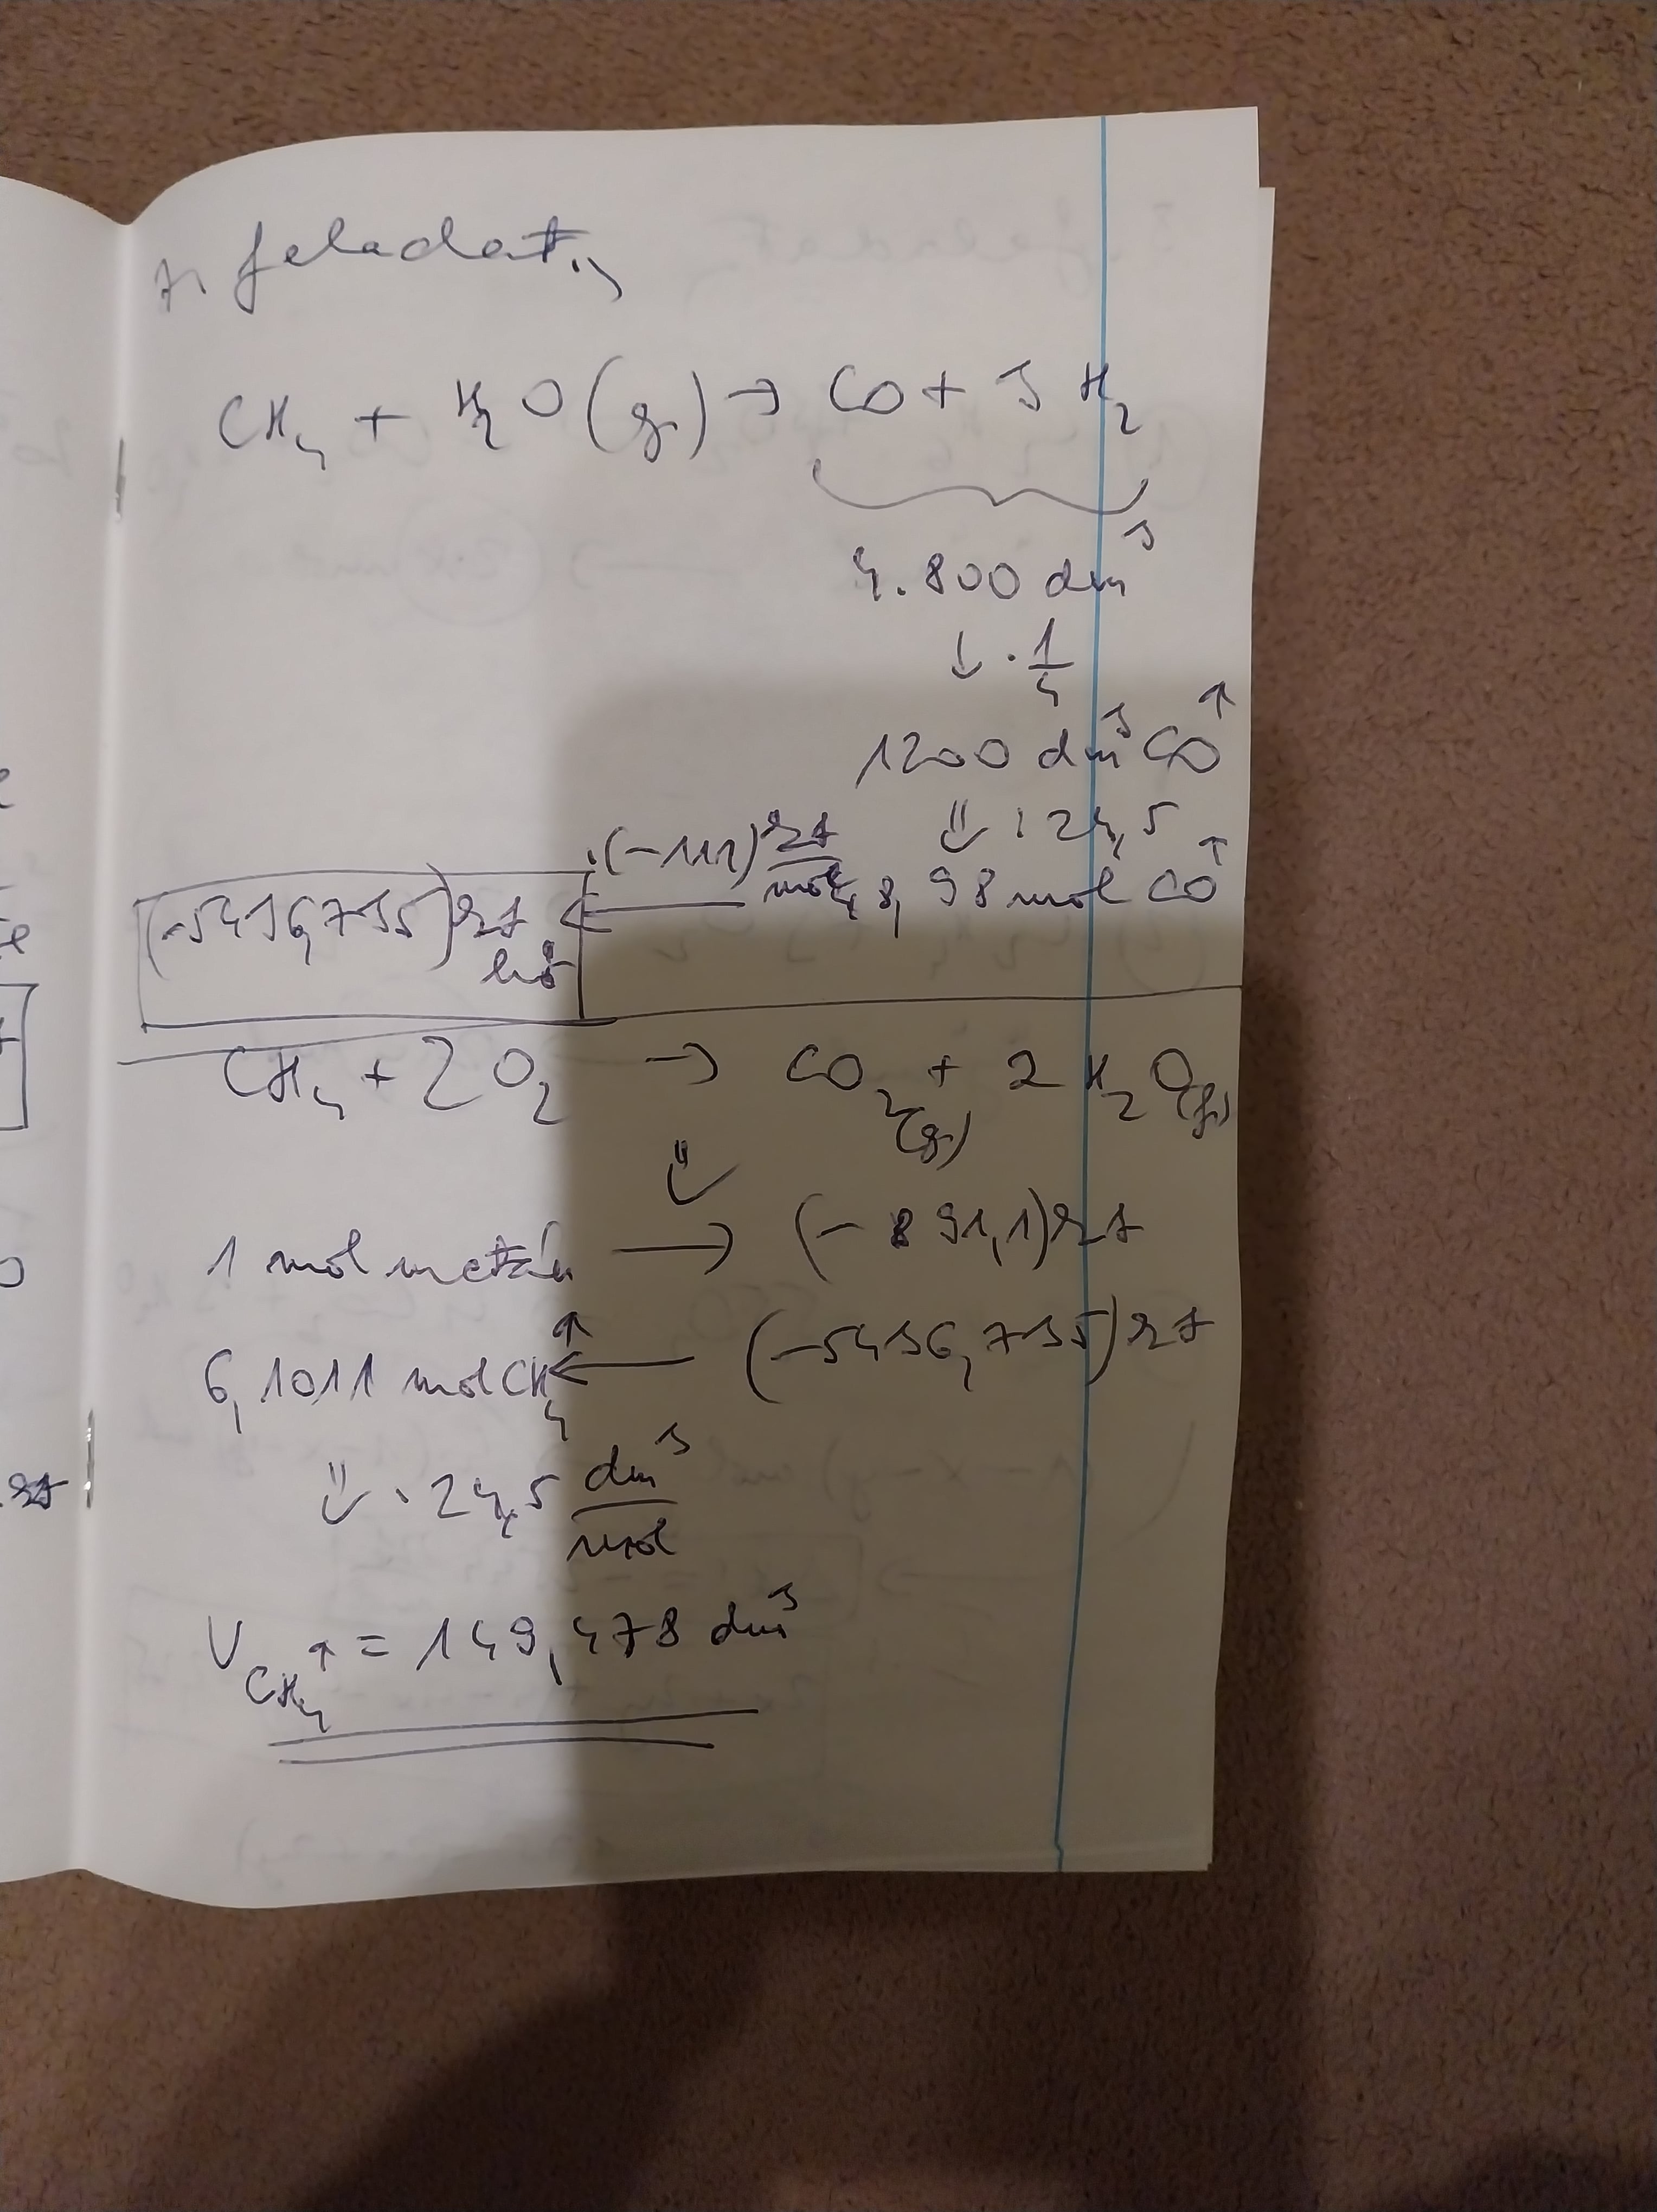 7. feladat:
CH₄ + H₂O(g) → CO + 3 H₂
4.800 dm³
↓ · 1/4
1200 dm³ CO↑
⇓ : 24,5
48,98 mol CO↑
· (-111) kJ/mol
←
(-5436,735) kJ
hő
CH₄ + 2 O₂ → CO₂(g) + 2 H₂O(f)
⇓
1 mol metán → (-891,1) kJ
6,1011 mol CH₄↑ ← (-5436,735) kJ
⇓ · 24,5 dm³/mol
V CH₄↑ = 149,478 dm³
kJ